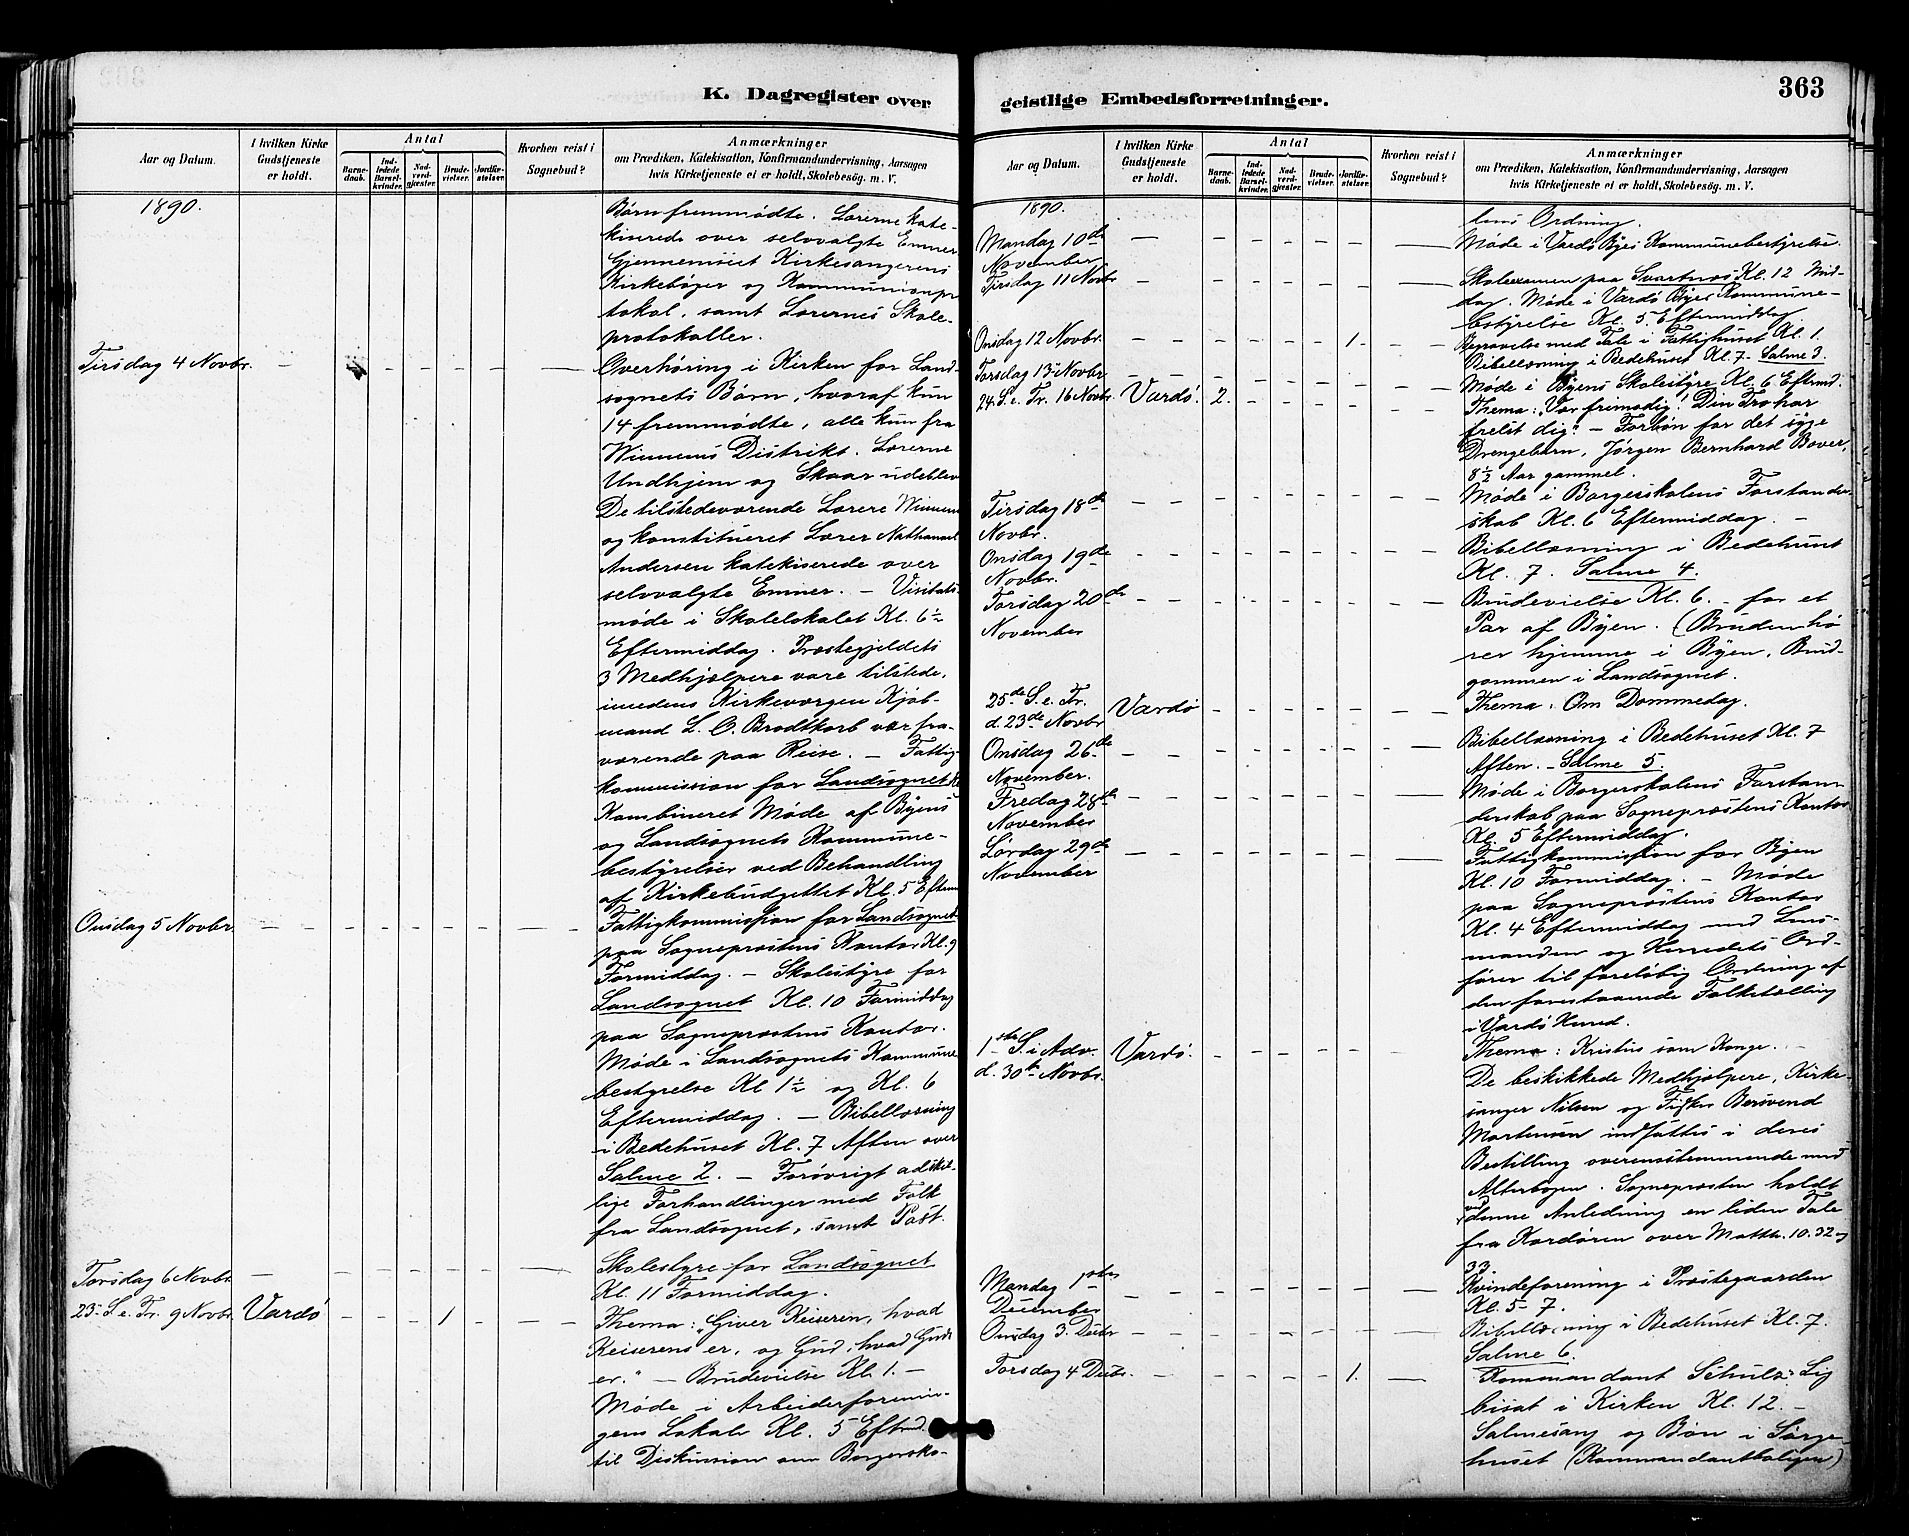 K. Dagregister over
Aar og Datum.
I hvilken Kirke Gudstjeneste er holdt.
Antal
Barne-daab.
Ind-ledede Barsel-kvinder.
Nad-verd-gjæster.
Brude-vielser.
Jordfæ-stelser.
Hvorhen reist i Sognebud?
Anmærkninger
om Prædiken, Katekisation, Konfirmandundervisning, Aarsagen
hvis Kirketjeneste ei er holdt, Skolebesög. m. V.
1890.
Børn fremmødte. Lærerne kate-
kiserede over selvvalgte Emner
Gjennemseet Kirkesangerens
Kirkebøger og Kommunionpr
tokol, samt Lærernes Skole-
protokoller.
Tirsdag 4 Novbr. - - - - - - - Overhøring i Kirken for Land-
sognets Børn, hvoraf kun
14 fremmødte, alle kun fra
Winnems Distrikt. Lærerne
Undhjem og Skaar udeblev
De tilstedeværende Lærere Winnem
og konstitueret Lærer Nathanael
Andersen katekiserede over
selvvalgte Emner. - Visitats-
møde i Skolelokalet Kl. 6½
Eftermiddag. Præstegjeldets
3 Medhjælpere vare tilstede,
imedens Kirkeværgen Kjøb-
mand L. O. Brodtkorb var fra-
værende paa Reise. - Fattig-
kommission for Landsognet
Kombineret Møde af Byens
og Landsognets Kommune-
bestyrelser ved Behandling
af Kirkebudgettet Kl. 5 Efterm
Onsdag 5 Novbr. - - - - - - - Fattigkommission for Landsognet
paa Sognepræstens Kontor Kl. 9
Formiddag. - Skolestyre for
Landsognet Kl. 10 Formiddag
paa Sognepræstens Kontor.
Møde i Landsognets Kommune
bestyrelse Kl 1½ og Kl. 6
Eftermiddag. - Bibellæsning
i Bedehuset Kl. 7 Aften over
Salme 2. - Forøvrigt adskil-
lige Forhandlinger med Folk
fra Landsognet, samt Post.
Torsdag 6 Novbr. - - - - - - - Skolestyre for Landsognet
Kl. 11 Formiddag.
23- S. e. Tr. 9 Novbr. Vardø - - - 1 - - Thema: "Giver Keiseren, hvad
Keiserens er, og Gud, hvad Guds
er." - Brudevielse Kl. 1. -
Møde i Arbeiderforenin-
gens Lokale Kl. 5 Eftmd.
til Diskussion om Borgersko-
geistlige Embedsforretninger.
363
Aar og Datum.
I hvilken Kirke Gudstjeneste er holdt.
Antal
Barne-daab.
Ind-ledede Barsel-kvinder.
Nad-verd-gjæster.
Brude-vielser.
Jordfæ-stelser.
Hvorhen reist i Sognebud?
Anmærkninger
om Prædiken, Katekisation, Konfirmandundervisning, Aarsagen
hvis Kirketjeneste ei er holdt, Skolebesög. m. V.
1890.
lens Ordning.
Mandag 10de November - - - - - - - Møde i Vardø Byes Kommunebestyrelse.
Tirsdag 11 Novbr - - - - - - - Skoleexamen paa Svartnes Kl. 12 Mid-
dag. Møde i Vardø Byes Kommune-
bestyrelse Kl. 5 Eftermiddag
Onsdag 12 Novbr. - - - - - 1. - Begravelse med Tale i Fattighuset Kl. 1.
Bibellæsning i Bedehuset Kl. 7 - Salme 3.
Torsdag 13 Novbr - - - - - - - Møde i Byens Skolestyre Kl. 6 Eftmd.
24. S. e. Tr. 16 Novbr. Vardø. 2. - - - - - Thema: "Vær frimodig! Din Tro har
frelst dig." - Forbøn for det syge
Drengebarn, Jørgen Bernhard Bover,
8½ Aar gammel.
Tirsdag 18de Novbr. - - - - - - - Møde i Borgerskolens Forstander-
skab Kl. 6 Eftermiddag. -
Onsdag 19de Novbr. - - - - - - - Bibellæsning i Bedehuset
Kl. 7. Salme 4.
Torsdag 20de November - - - - - - - Brudevielse Kl. 6. - for et
Par af Byen. (Bruden hø
rer hjemme i Byen, Brud-
gommen i Landsognet.
25de S. e. Tr. d. 23de Novbr Vardø - - - - - - Thema: Om Dommedag.
Onsdag 26de November. - - - - - - - Bibellæsning i Bedehuset Kl. 7
Aften. - Salme 5.
Fredag 28de November - - - - - - - Møde i Borgerskolens Forstan
derskab paa Sognepræstens Kontor
Kl. 5 Eftermiddag.
Lørdag 29de November - - - - - - - Fattigkommission for Byen
Kl. 10 Formiddag. - Møde
paa Sognepræstens Kontor
Kl. 4 Eftermiddag med Lens-
manden og Herredets Ord-
fører til foreløbig Ordning af
den forestaaende Folketælling
i Vardø Herred.
1ste S. i Adv. d. 30te Novbr. Vardø. - - - - - - Thema: Kristus som Konge. -
De beskikkede Medhjælpere, Kirke-
sanger Nilsen og Fisker Bersvend
Mortensen indsattes i deres
Bestilling overensstemmende med
Alterbogen. Sognepræsten holdt
ved denne Anledning en liden Tale
fra Kordøren over Matth. 10. 32 og
33.
Mandag 1ste December - - - - - - - Kvindeforening i Præstegaarden
Kl. 5-7.
Onsdag 3. Decbr - - - - - - - Bibellæsning i Bedehuset Kl. 7.
Salme 6.
Torsdag 4 Decbr. - - - - - 1. - Kommandant Schulz's Lig
bisat i Kirken Kl. 12. -
Salmesang og Bøn i Sørge-
huset (Kommandantboligen)